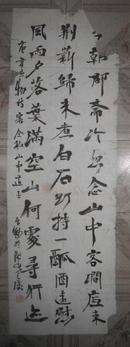 今朝郡斋冷忽念山中客澗底束
荆薪歸来煮白石欲持一瓢酒遠慰
風雨夕落葉滿空山何處尋行迹
唐韋應物詩寄全椒山中道士